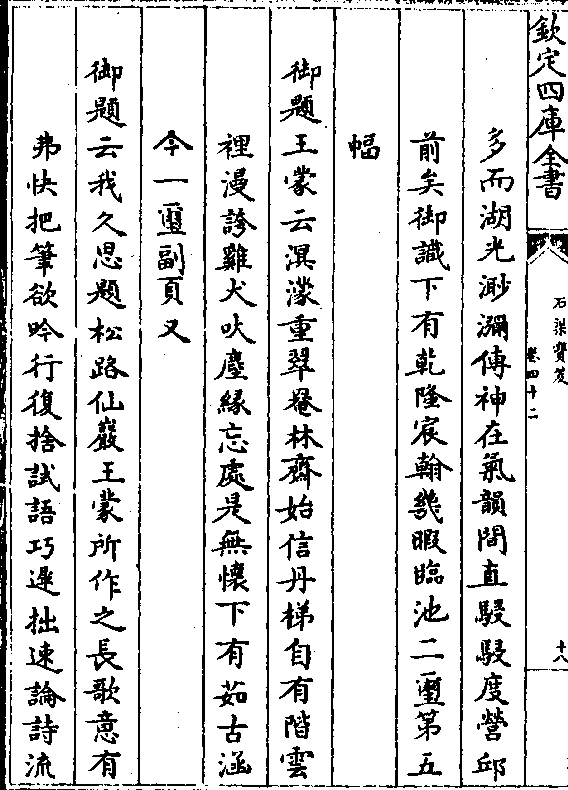 欽定四庫全書
石渠寶笈
卷四十二
十八
多而湖光渺瀰傳神在氣韻間直駸駸度營邱
前矣御識下有乾隆宸翰幾暇臨池二璽第五
幅
御題王蒙云溟濛重翠罨林齋始信丹梯自有階雲
裡漫誇雞犬吠塵縁忘處是無懷下有茹古涵
今一璽副頁又
御題云我久思題松路仙巖王蒙所作之長歌意有
弗快把筆欲吟行復捨試語巧遲拙速論詩流